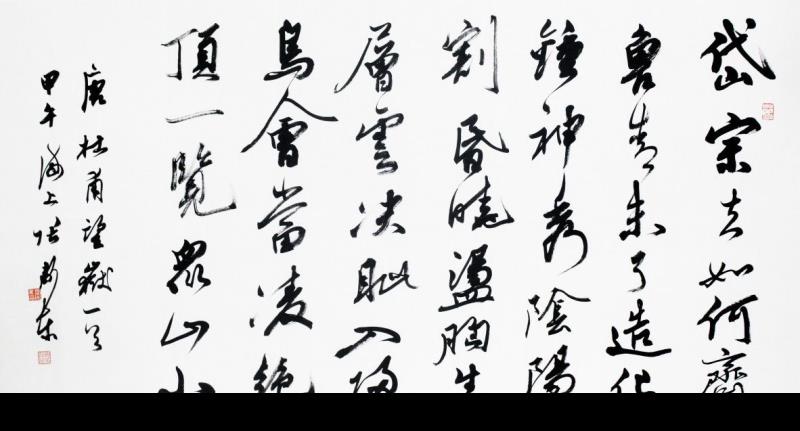 岱宗夫如何齊
魯青未了造化
鍾神秀陰陽
割昏曉盪胸生
層雲決眦入歸
鳥會當凌絕
頂一覽眾山小
唐杜甫望嶽一首
甲午海上張東